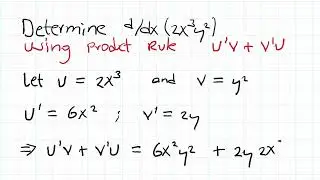 Determine d/dx (2x³y²)
Using Prodct Rule U'V + V'U
Let U = 2x³ and V = y²
U' = 6x² ; V' = 2y
⇒ U'V + V'U = 6x²y² + 2y 2x